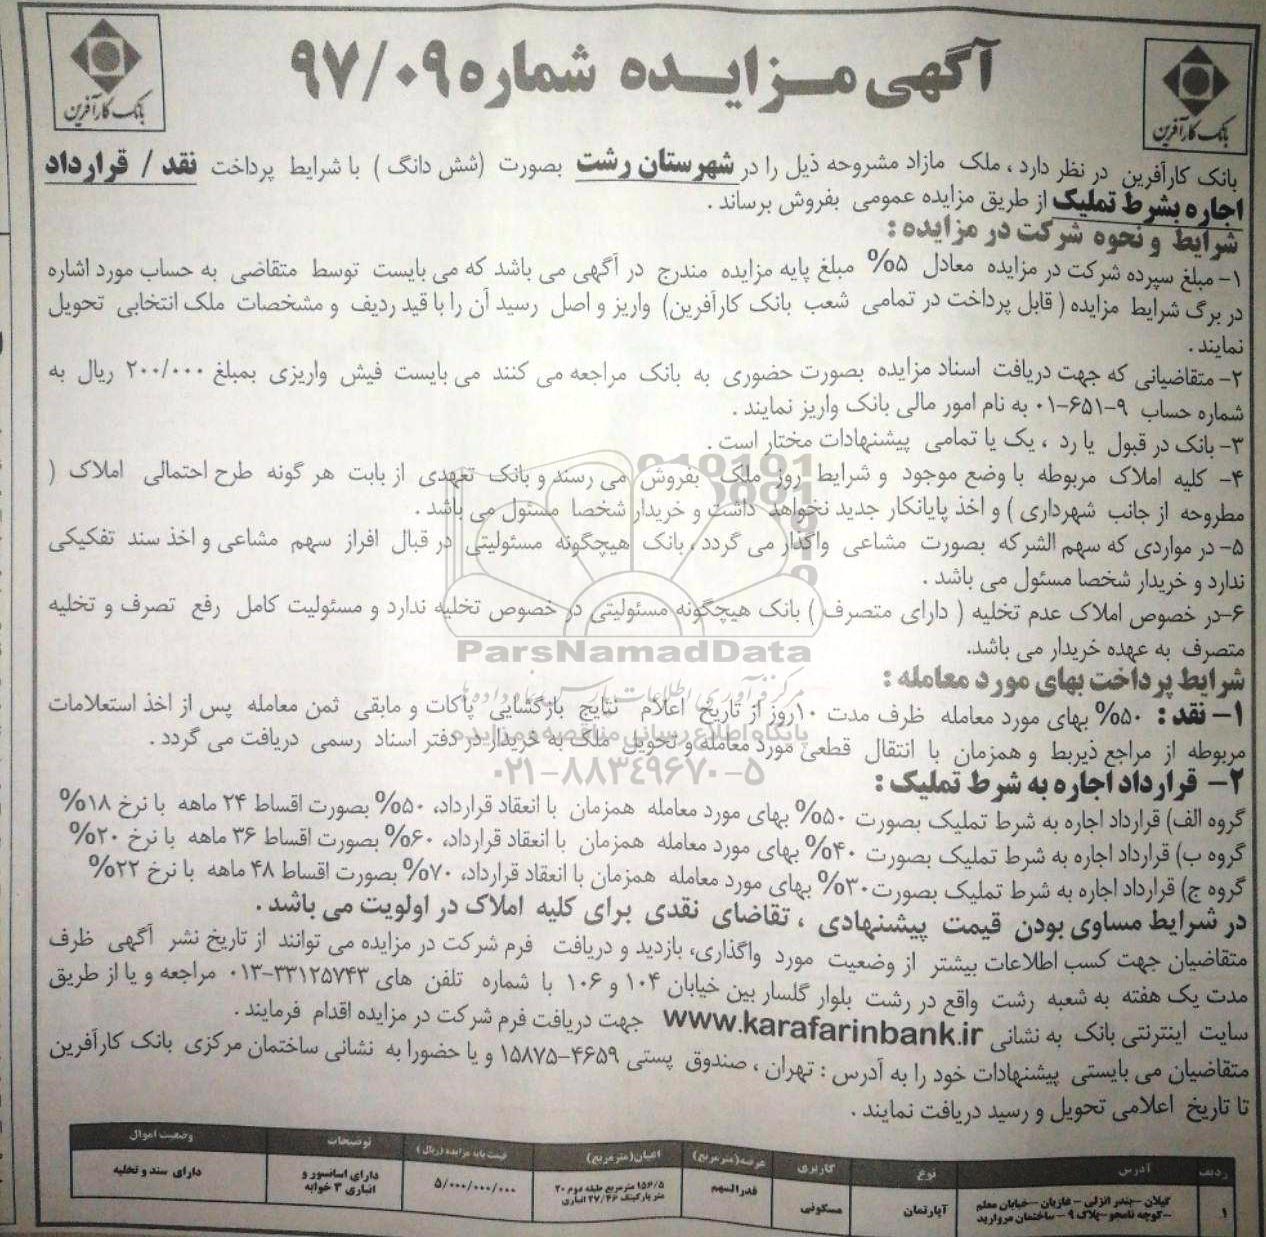 آگهی مزایده شماره ۹۷/۰۹
بانک کارآفرین
بانک کارآفرین
بانک کارآفرین در نظر دارد ، ملک مازاد مشروحه ذیل را در شهرستان رشت بصورت (شش دانگ ) با شرایط پرداخت نقد / قرارداد
اجاره بشرط تملیک از طریق مزایده عمومی بفروش برساند .
شرایط و نحوه شرکت در مزایده :
۱- مبلغ سپرده شرکت در مزایده معادل ۵% مبلغ پایه مزایده مندرج در آگهی می باشد که می بایست توسط متقاضی به حساب مورد اشاره
در برگ شرایط مزایده ( قابل پرداخت در تمامی شعب بانک کارآفرین) واریز و اصل رسید آن را با قید ردیف و مشخصات ملک انتخابی تحویل
نمایند .
۲- متقاضیانی که جهت دریافت اسناد مزایده بصورت حضوری به بانک مراجعه می کنند می بایست فیش واریزی بمبلغ ۲۰۰/۰۰۰ ریال به
شماره حساب ۹-۶۵۱-۰۱ به نام امور مالی بانک واریز نمایند .
۳- بانک در قبول یا رد ، یک یا تمامی پیشنهادات مختار است .
۴- کلیه املاک مربوطه با وضع موجود و شرایط روز ملک بفروش می رسند و بانک تعهدی از بابت هر گونه طرح احتمالی املاک (
مطروحه از جانب شهرداری ) و اخذ پایانکار جدید نخواهد داشت و خریدار شخصا مسئول می باشد .
۵- در مواردی که سهم الشرکه بصورت مشاعی واگذار می گردد ، بانک هیچگونه مسئولیتی در قبال افراز سهم مشاعی و اخذ سند تفکیکی
ندارد و خریدار شخصا مسئول می باشد .
۶-در خصوص املاک عدم تخلیه ( دارای متصرف ) بانک هیچگونه مسئولیتی در خصوص تخلیه ندارد و مسئولیت کامل رفع تصرف و تخلیه
متصرف به عهده خریدار می باشد.
ParsNamadData
شرایط پرداخت بهای مورد معامله :
مرکز فرآوری اطلاعات پارس نماد داده ها
۱- نقد : ۵۰% بهای مورد معامله ظرف مدت ۱۰روز از تاریخ اعلام نتایج بازگشایی پاکات و مابقی ثمن معامله پس از اخذ استعلامات
پایگاه اطلاع رسانی مناقصه و مزایده
مربوطه از مراجع ذیربط و همزمان با انتقال قطعی مورد معامله و تحویل ملک به خریدار در دفتر اسناد رسمی دریافت می گردد .
۰۲۱-۸۸۳۴۹۶۷۰-۵
۲- قرارداد اجاره به شرط تملیک :
گروه الف) قرارداد اجاره به شرط تملیک بصورت ۵۰% بهای مورد معامله همزمان با انعقاد قرارداد، ۵۰% بصورت اقساط ۲۴ ماهه با نرخ ۱۸%
گروه ب) قرارداد اجاره به شرط تملیک بصورت ۴۰% بهای مورد معامله همزمان با انعقاد قرارداد، ۶۰% بصورت اقساط ۳۶ ماهه با نرخ ۲۰%
گروه ج) قرارداد اجاره به شرط تملیک بصورت ۳۰% بهای مورد معامله همزمان با انعقاد قرارداد، ۷۰% بصورت اقساط ۴۸ ماهه با نرخ ۲۲%
در شرایط مساوی بودن قیمت پیشنهادی ، تقاضای نقدی برای کلیه املاک در اولویت می باشد .
متقاضیان جهت کسب اطلاعات بیشتر از وضعیت مورد واگذاری، بازدید و دریافت فرم شرکت در مزایده می توانند از تاریخ نشر آگهی ظرف
مدت یک هفته به شعبه رشت واقع در رشت بلوار گلسار بین خیابان ۱۰۴ و ۱۰۶ با شماره تلفن های ۳۳۱۲۵۷۴۳-۰۱۳ مراجعه و یا از طریق
سایت اینترنتی بانک به نشانی www.karafarinbank.ir جهت دریافت فرم شرکت در مزایده اقدام فرمایند .
متقاضیان می بایستی پیشنهادات خود را به آدرس : تهران ، صندوق پستی ۴۶۵۹-۱۵۸۷۵ و یا حضورا به نشانی ساختمان مرکزی بانک کارآفرین
تا تاریخ اعلامی تحویل و رسید دریافت نمایند .
ردیف آدرس نوع کاربری عرصه(مترمربع) اعیان(مترمربع) قیمت پایه مزایده (ریال) توضیحات وضعیت اموال
۱ گیلان -بندر انزلی - غازیان -خیابان معلم -کوچه نامجو-پلاک ۹ - ساختمان مروارید آپارتمان مسکونی قدرالسهم ۱۵۶/۵ مترمربع طبقه دوم ۲۰ متر پارکینگ ۲۷/۴۶ انباری ۵/۰۰۰/۰۰۰/۰۰۰ دارای آسانسور و انباری ۳ خوابه دارای سند و تخلیه